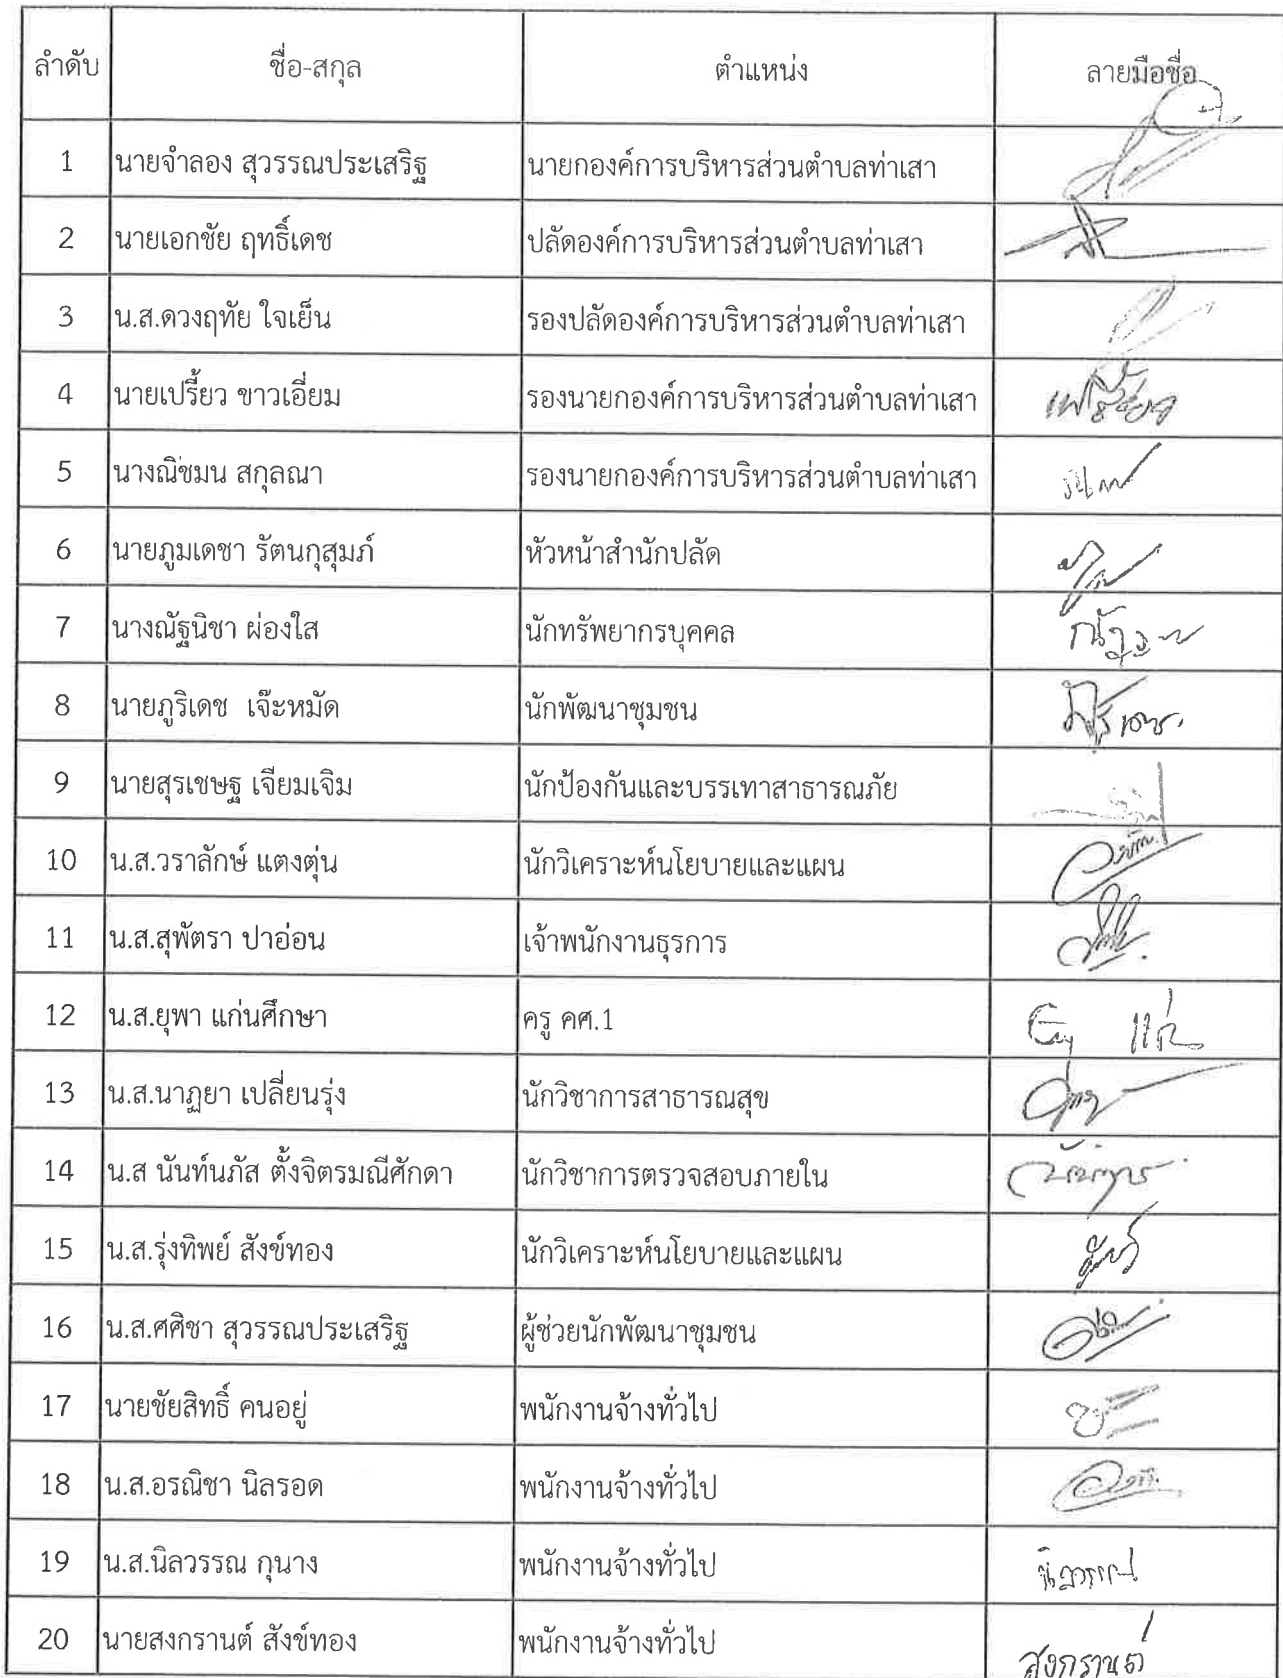 ลำดับ ชื่อ-สกุล ตำแหน่ง ลายมือชื่อ
1 นายจำลอง สุวรรณประเสริฐ นายกองค์การบริหารส่วนตำบลท่าเสา
2 นายเอกชัย ฤทธิ์เดช ปลัดองค์การบริหารส่วนตำบลท่าเสา
3 น.ส.ดวงฤทัย ใจเย็น รองปลัดองค์การบริหารส่วนตำบลท่าเสา
4 นายเปรี้ยว ขาวเอี่ยม รองนายกองค์การบริหารส่วนตำบลท่าเสา เปรี้ยว
5 นางณิชมน สกุลณา รองนายกองค์การบริหารส่วนตำบลท่าเสา
6 นายภูมเดชา รัตนกุสุมภ์ หัวหน้าสำนักปลัด
7 นางณัฐนิชา ผ่องใส นักทรัพยากรบุคคล
8 นายภูริเดช เจ๊ะหมัด นักพัฒนาชุมชน
9 นายสุรเชษฐ เจียมเจิม นักป้องกันและบรรเทาสาธารณภัย
10 น.ส.วราลักษ์ แตงตุ่น นักวิเคราะห์นโยบายและแผน
11 น.ส.สุพัตรา ปาอ่อน เจ้าพนักงานธุรการ
12 น.ส.ยุพา แก่นศึกษา ครู คศ.1
13 น.ส.นาฏยา เปลี่ยนรุ่ง นักวิชาการสาธารณสุข
14 น.ส นันท์นภัส ตั้งจิตรมณีศักดา นักวิชาการตรวจสอบภายใน
15 น.ส.รุ่งทิพย์ สังข์ทอง นักวิเคราะห์นโยบายและแผน
16 น.ส.ศศิชา สุวรรณประเสริฐ ผู้ช่วยนักพัฒนาชุมชน
17 นายชัยสิทธิ์ คนอยู่ พนักงานจ้างทั่วไป
18 น.ส.อรณิชา นิลรอด พนักงานจ้างทั่วไป
19 น.ส.นิลวรรณ กุนาง พนักงานจ้างทั่วไป นิลวรรณ
20 นายสงกรานต์ สังข์ทอง พนักงานจ้างทั่วไป สงกรานต์